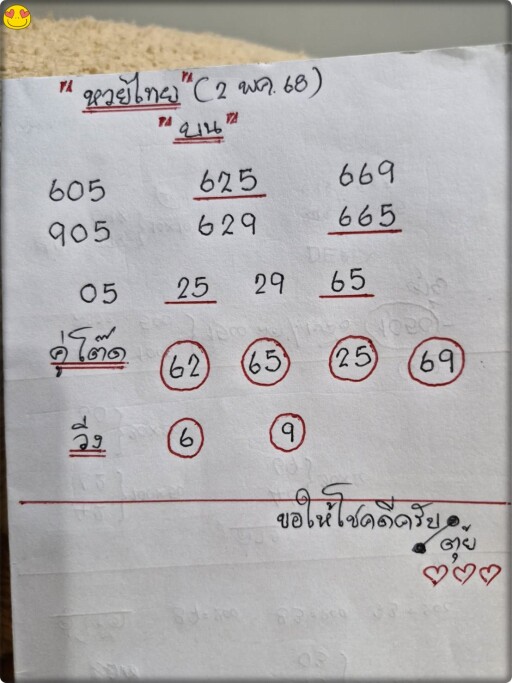 " หวยไทย " (2 พค. 68)
" บน "
605 625 669
905 629 665
05 25 29 65
คู่โต๊ด 62 65 25 69
วิ่ง 6 9
ขอให้โชคดีครับ
ตุ้ย
♡♡♡